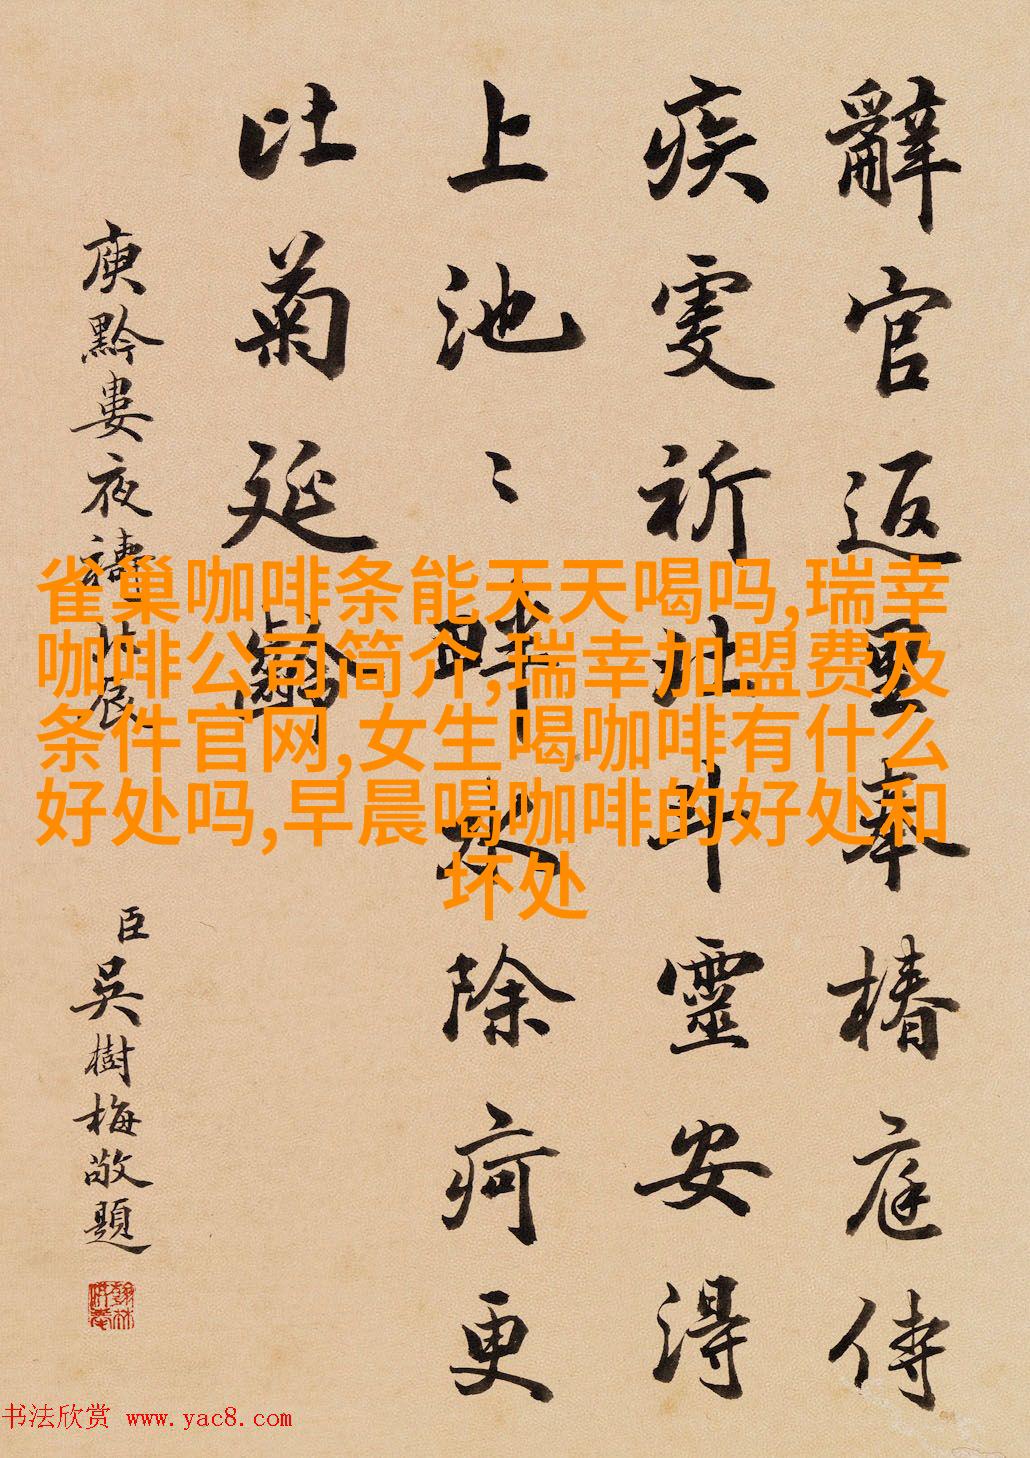 辭官返里奉椿庭侍
疾虔祈北斗靈安得
上池〻畔水除疴更
比菊延齡
庾黔婁夜禱北辰
臣吳樹梅敬題
雀巢咖啡条能天天喝吗,瑞幸
咖啡公司简介,瑞幸加盟费及
条件官网,女生喝咖啡有什么
好处吗,早晨喝咖啡的好处和
坏处
书法欣赏 www.yac8.com